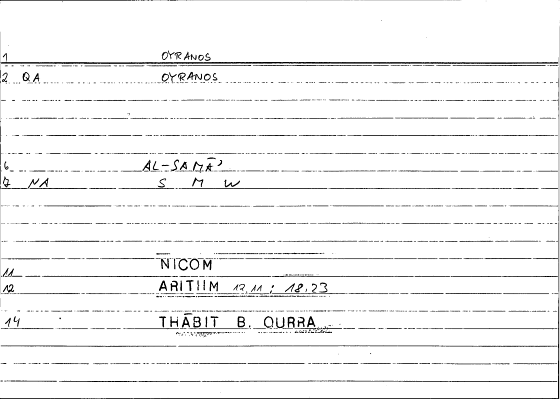 1 OYRANOS
2 QA OYRANOS
6 AL-SAMĀ'
7 NA S M W
11 NICOM
12 ARITIIM 12,11 ; 18.23
14 THĀBIT B. QURRA